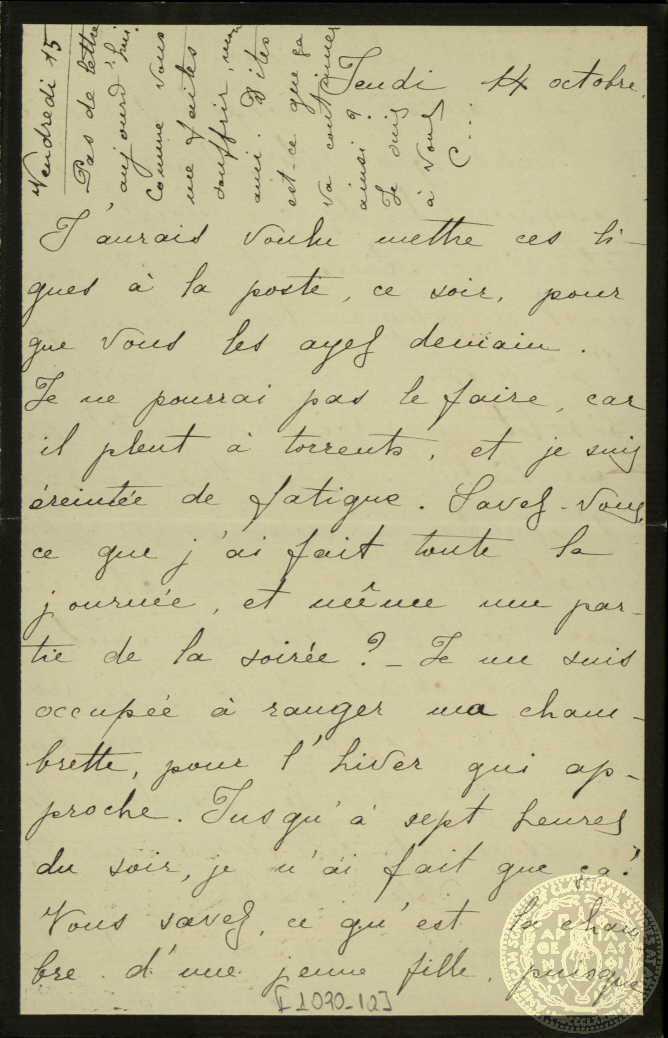 Jeudi 14 octobre.
J'aurais voulu mettre ces li-
gnes à la poste, ce soir, pour
que vous les ayez demain.
Je ne pourrai pas le faire, car
il pleut à torrents, et je suis
éreintée de fatigue. Savez-vous
ce que j'ai fait toute la
journée, et même une par-
tie de la soirée? - Je me suis
occupée à ranger ma cham-
brette, pour l'hiver qui ap-
proche. Jusqu'à sept heures
du soir, je n'ai fait que ça!
Vous savez, ce qu'est la cham
bre d'une jeune fille, puisque
Vendredi 15
Pas de lettre
aujourd'hui.
Comme vous
me faites
souffrir, mon
ami. Dites
est-ce que ça
va continuer
ainsi?
Je suis
à vous
C...
[I 2020-12]
AMERICAN SCHOOL CLASSICAL STUDIES